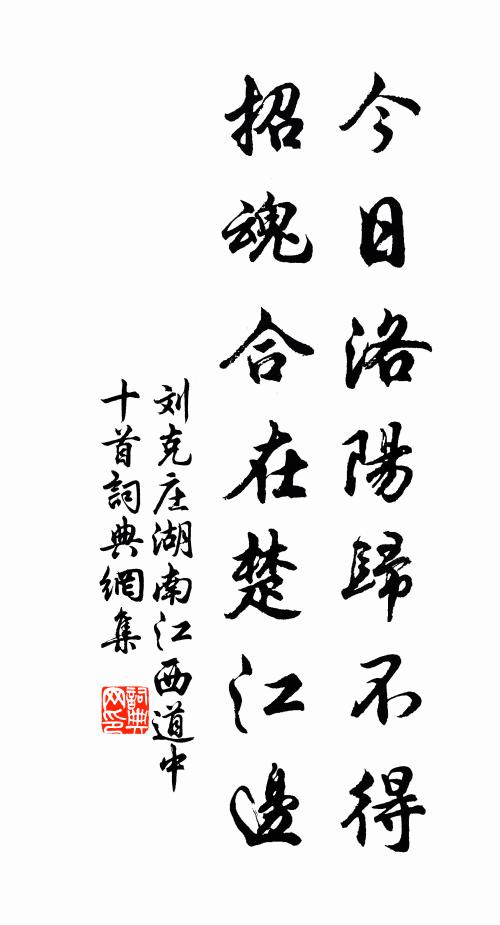 今日洛陽歸不得
招魂合在楚江邊
刘克庄湖南江西道中
十首詞典網集
詞典
网印